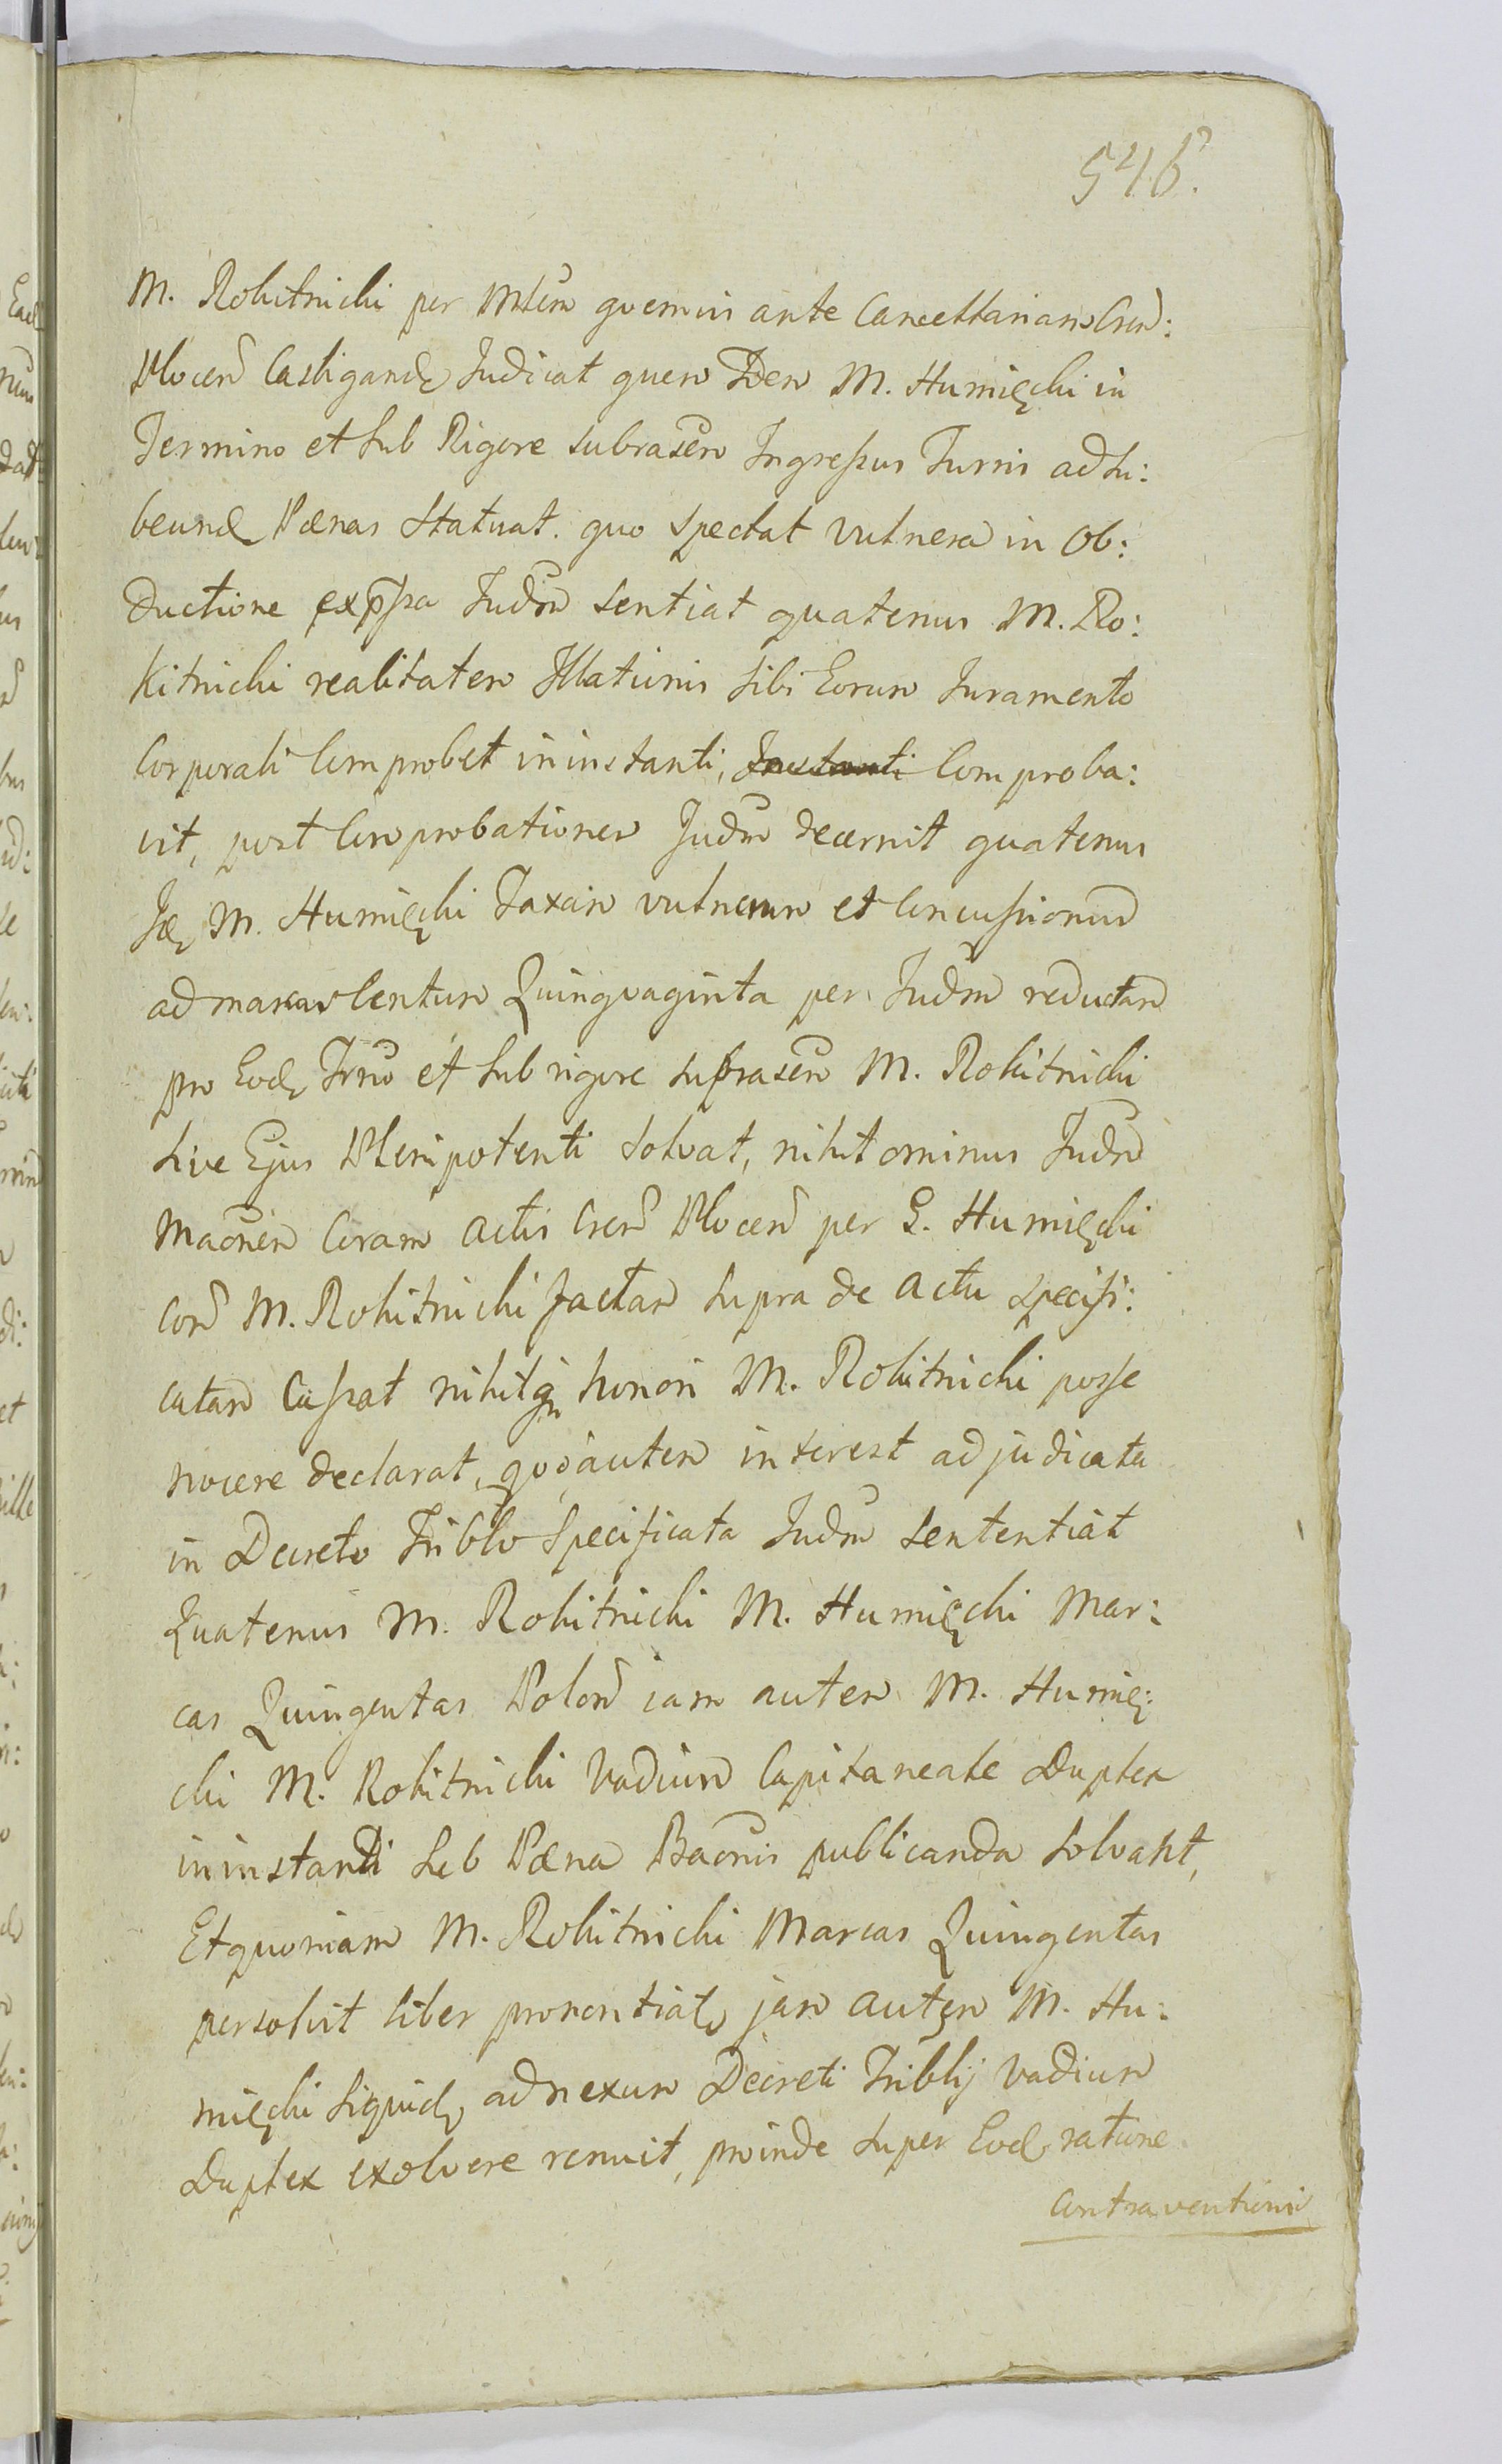 546.
M. Rokitnicki per Mtem quemvis ante Cancellariam Cren:
Plocen Castigand Judicat quem Iden M. Humięcki in
Termino et sub Rigore suprascrn Ingressus Turris adhi:
beund Pænas Statuat. quo spectat vulnera in Ob:
ductione exp̃ssa Judm sentiat quatenus M. Ro:
kitnicki realitatem Illationis sibi Eorum Juramento
Corporali Comprobet in instanti, Instanti Comproba:
vit, post Comprobationem Judm decernit quatenus
M. Humięcki Taxam vulnerum et Concussionum
ad marcas Centum Quinquaginta per Judm reductam
pro Eod Trno et sub rigore suprascrn M. Rokitnicki
sive Ejus Plenipotenti solvat, nihilominus Judm
Maonem Coram actis Cren Plocen per G. Humięcki
Con M. Rokitnicki factam supra de actu specifi:
catam Cassat nihilq honori M. Rokitnicki posse
nocere declarat, quo autem interest adjudicata
in Decreto Triblo Specificata Judm sententiat
Quatenus M. Rokitnicki M. Humięcki Mar:
cas Quingentas Polon iam autem M. Humię:
cki M. Rokitnicki Vadium Capitaneale Duplex
in instanti sub Pæna Baonis publicanda solvant,
Et quoniam M. Rokitnicki Marcas Quingentas
persolvit liber pronontiat, jam autem M. Hu:
mięcki siquid, ad nexum Decreti Triblij Vadium
Duplex exolvere renuit, proinde super Eod ratione
Contraventionis